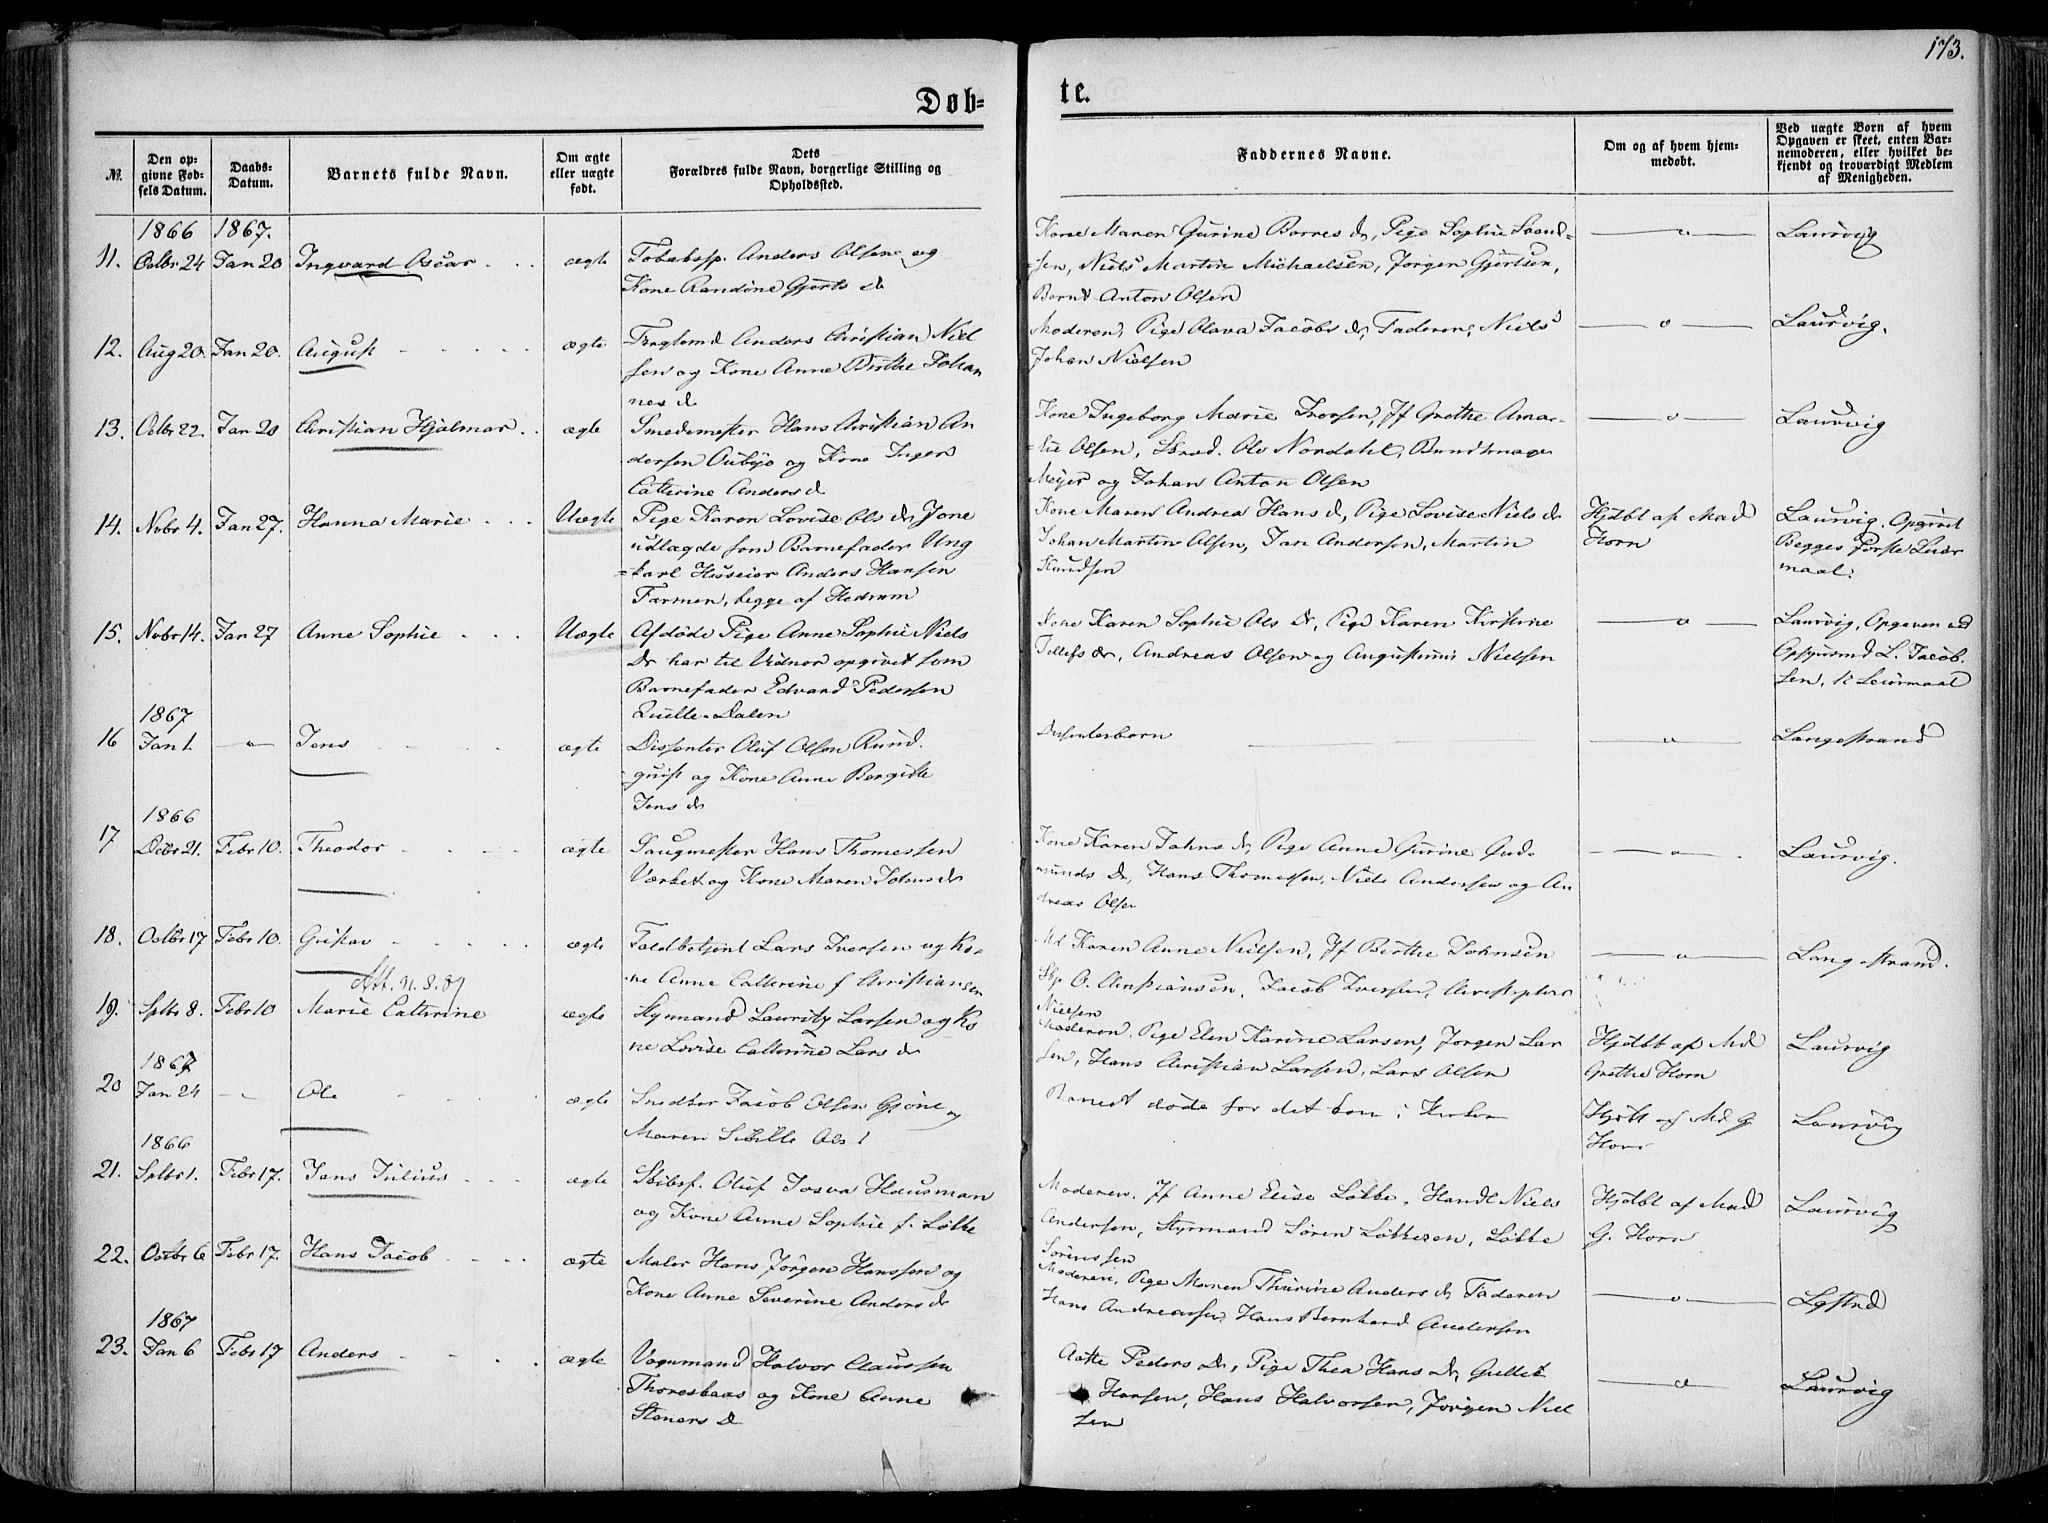 173.
Døb=
te.
№.
Den op=
givne Fød=
sels Datum.
Daabs=
Datum.
Barnets fulde Navn.
Om ægte
eller uægte
født.
Dets
Forældres fulde Navn, borgerlige Stilling og
Opholdssted.
Faddernes Navne.
Om og af hvem hjem=
medøbt.
Ved uægte Børn af hvem
Opgaven er skeet, enten Bar=
nemoderen, eller hvilket be=
kjendt og troværdigt Medlem
af Menigheden.
1866 1867.
11. Octbr 24 Jan 20 Ingvard Oscar ægte
Tobaksp. Anders Olsen og
Kone Randine Gjerts d
Kone Maren Gurine Borres dr, Pige Sophie
sen, Niels Martin Michaelsen, Jørgen Gjertsen,
Bernt Anton Olsen
Laurvig
12. Aug 20. Jan 20. August ægte
Anders Christian Niel
sen og Kone Anne Birthe Johan
nes d
Moderen, Pige Olava Jacobs dr, Faderen, Niels
Johan Nielsen
Laurvig.
13. Octbr 22. Jan 20 Christian Hjalmar ægte
Smedemester Hans Christian An
dersen og Kone Inger
Cathrine Anders d
Kone Ingeborg Marie Iversen, Jf Grethe Ama=
=lie Olsen, Ole Nordahl, Bundtmager
Meyer og Johan Anton Olsen
Laurvig
14. Novbr 4. Jan 27. Hanna Marie Uægte
Pige Karen Lovise Ols dr,
udlagde som Barnefader Ung
=karl Anders Hansen
Farmen, begge af Hedrum
Kone Maren Andrea Hans d, Pige Lovise Niels dr
Johan Martin Olsen, Jan Andersen, Martin
Knudsen
Hjdbt af Mad
Horn
Laurvig. Opgivet
Begges første Leier
maal.
15. Novbr 14. Jan 27 Anne Sophie Uægte
Afdøde Pige Anne Sophie Niels
dr har til opgivet som
Barnefader Edvard Pedersen
Quelle-Dalen
Kone Karen Sophie Ols dr, Pige Karen Kirstine
Tollefs dr, Andreas Olsen og Augustinus Nielsen
Laurvig, Opgaven ved
L. Jacob
sen, 1e Leiermaal
1867
16 Jan 1. Jens ægte
Dissenter Oluf Olsen Rund
quist og Kone Anne Bergitte
Jens dr
Dissenterbarn
Langestrand
1866
17 Decbr 21. Febr 10. Theodor ægte
Saugmester Hans Thomessen
Værket og Kone Maren Johns dr
Kone Karen Johns dr, Pige Anne Gurine Gud=
munds dr, Hans Thomessen, Niels Andersen og An
dreas Olsen
Laurvig.
18. Octbr 17 Febr 10. Gustav ægte
Att. 21.8.89
Toldbetjent Lars Iversen og Ko=
ne Anne Cathrine f Christiansen
Md Karen Anne Nielsen, Jf Birthe Johnsen
O. Christiansen, Jacob Iversen, Christopher
Nielsen
Langestrand.
19. Sptbr 8. Febr 10 Marie Cathrine ægte
Styrmand Lauritz Larsen og Ko
ne Lovise Cathrine Lars dr
Moderen, Pige Elen Karine Larsen, Jørgen Lar
sen, Hans Christian Larsen, Lars Olsen
Hjdbt af Md
Grethe Horn
Laurvig
1867
20 Jan 24 Ole ægte
Jacob Olsen Gjone og
Maren Sibille Ols d
Barnet døde før det kom i Kirken
Hjdbt af Md G
Horn
Laurvig
1866
21. Sptbr 1. Febr 17. Jens Julius ægte
Skibsf. Oluf Josva Hausman
og Kone Anne Sophie f. Løkke
Moderen, Jf Anne Elise Løkke, Handl Niels
Andersen, Styrmand Søren Løkkesen, Løkke
Sørenssen
Hjdbt af Mad
G. Horn
Laurvig
22. Octbr 6 Febr 17. Hans Jacob ægte
Maler Hans Jørgen Hanssen og
Kone Anne Severine Anders dr
Moderen, Pige Maren Thurine Anders dr, Faderen
Hans Andreassen, Hans Bernhard Andersen
Lgstrd
1867
23. Jan 6 Febr 17 Anders ægte
Vognmand Halvor Claussen
Thoresbaas og Kone Anne
Steners d
Aatte Peders dr, Pige Thea Hans dr, Gullik
Hansen, Hans Halvorsen, Jørgen Niel
sen
Laurvig